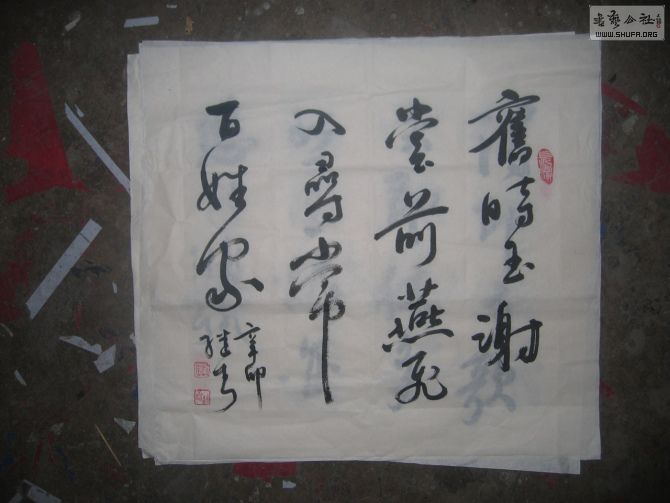 舊時玉謝
堂前燕飛
入尋常
百姓家
辛卯
書藝公社
WWW.SHUFA.ORG